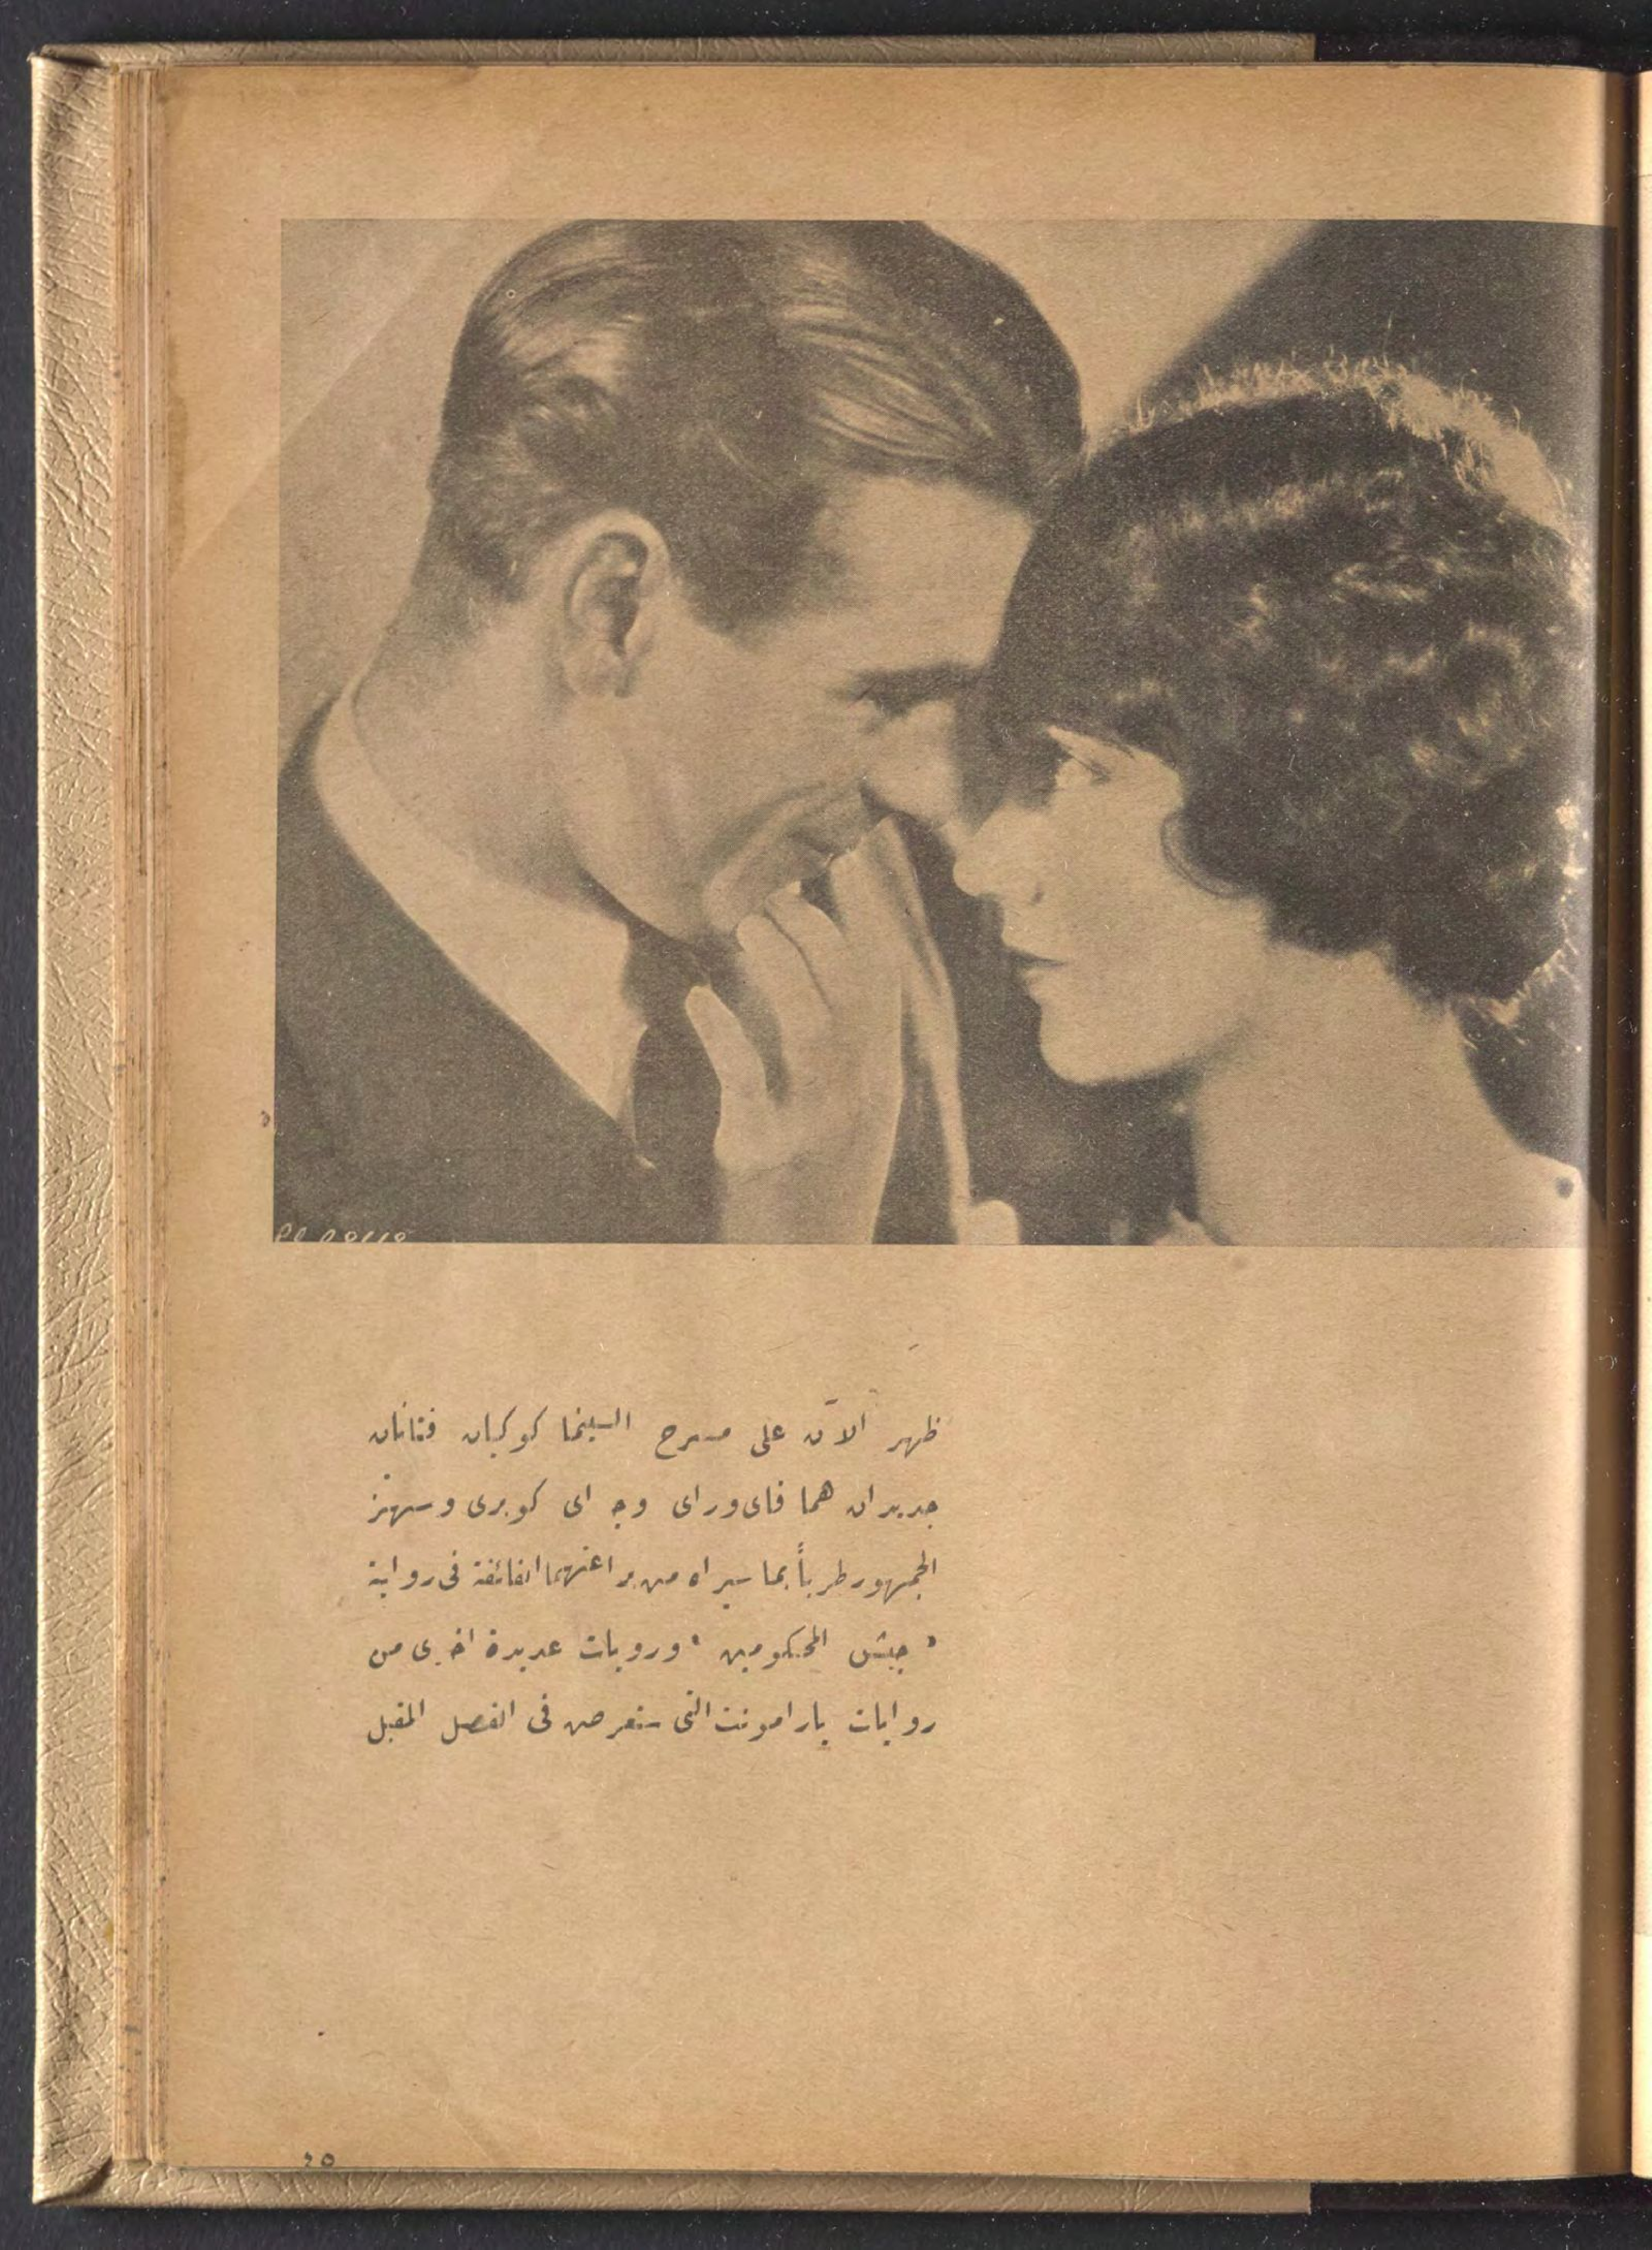 ظهر الآن على مسرح السينما كوكبان فتانان
جديدان هما فاى وراى وجـ اى كوبرى وسيهتز
الجمهور طرباً بما سيراه من براعتهما الفائقة فى رواية
« جيش المحكومين » ورويات عديدة اخرى من
روايات بارامونت التى ستعرض فى الفصل المقبل